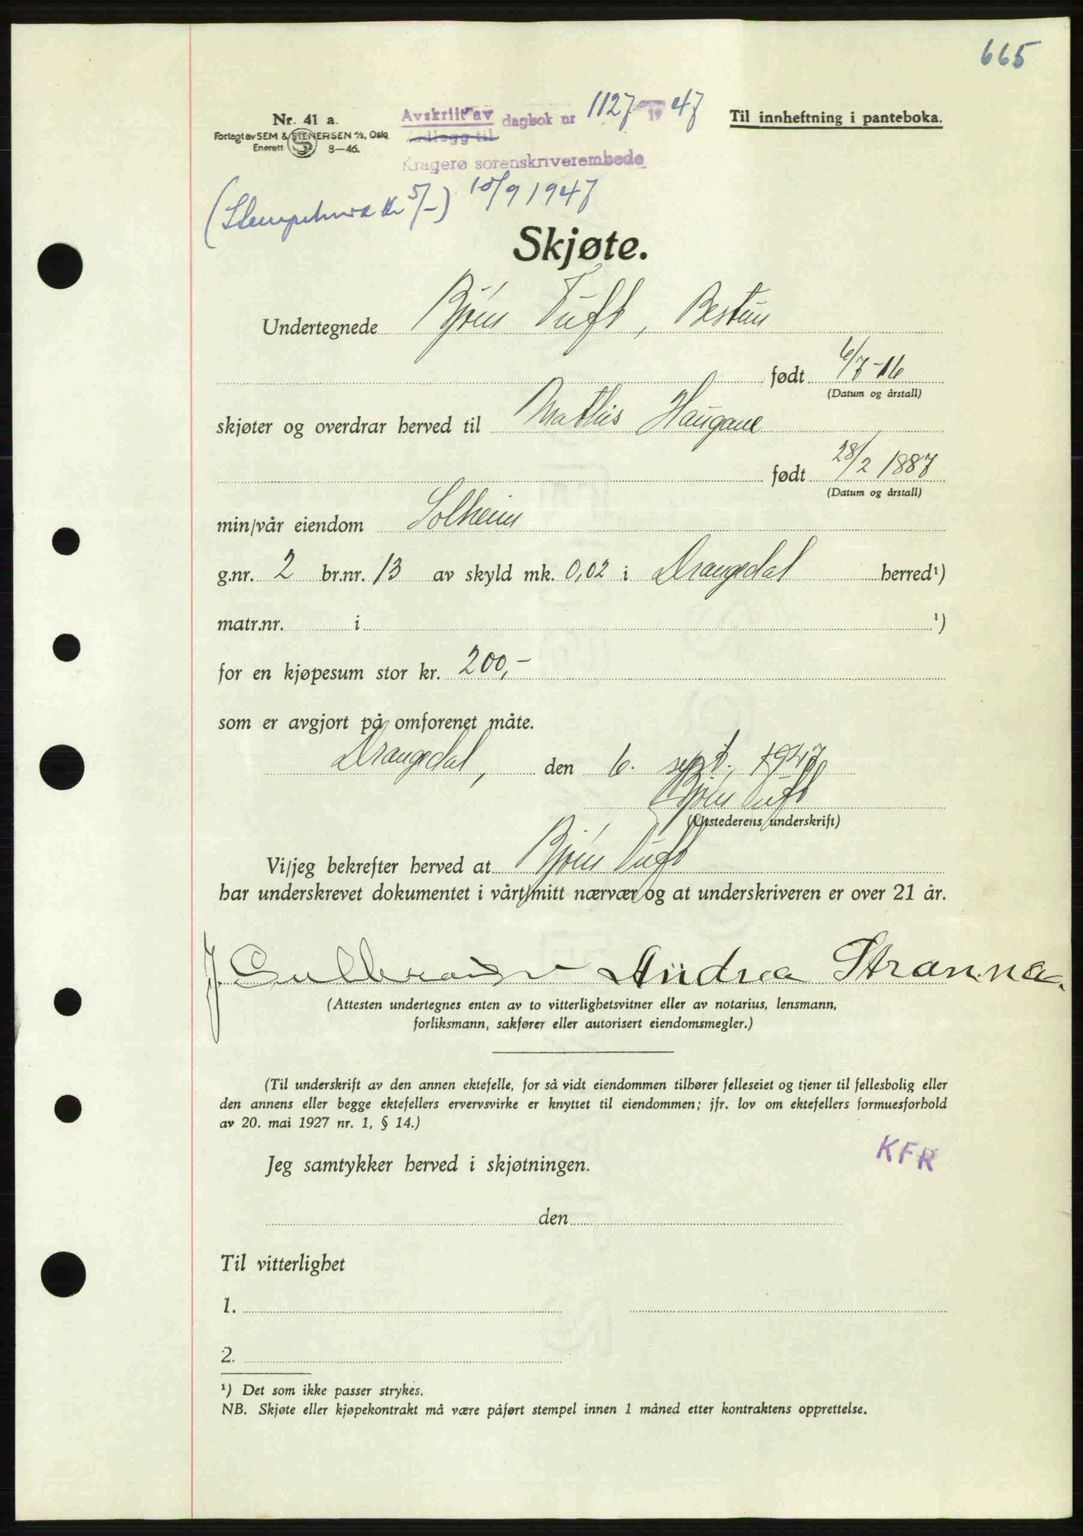 665
Nr. 41 a.
Forlagt av SEM & STENERSEN A/S, Oslo
Enerett 8—46.
Avskrift av dagbok nr 1127 1947
Vedlegg til
Kragerø sorenskriverembede
Til innheftning i panteboka.
(Stempelmerke kr 5/-) 10/9 1947
Skjøte.
Undertegnede Bjørn Tuft, Bestun
født 6/7-16
(Datum og årstall)
skjøter og overdrar herved til Mathis Haugane
født 28/2 1887
(Datum og årstall)
min/vår eiendom Solheim
g.nr. 2 br.nr. 13 av skyld mk. 0,02 i Drangedal herred¹)
matr.nr. i ¹)
for en kjøpesum stor kr. 200,-
som er avgjort på omforenet måte.
Drangedal, den 6. sept. 1947
Bjørn Tuft
(Utstederens underskrift)
Vi/jeg bekrefter herved at Bjørn Tuft
har underskrevet dokumentet i vårt/mitt nærvær og at underskriveren er over 21 år.
J. Gulbrandsen Andrea Stranna.
(Attesten undertegnes enten av to vitterlighetsvitner eller av notarius, lensmann,
forliksmann, sakfører eller autorisert eiendomsmegler.)
(Til underskrift av den annen ektefelle, for så vidt eiendommen tilhører felleseiet og tjener til fellesbolig eller
den annens eller begge ektefellers ervervsvirke er knyttet til eiendommen; jfr. lov om ektefellers formuesforhold
av 20. mai 1927 nr. 1, § 14.)
KFR
Jeg samtykker herved i skjøtningen.
den
Til vitterlighet
1.
2.
¹) Det som ikke passer strykes.
NB. Skjøte eller kjøpekontrakt må være påført stempel innen 1 måned etter kontraktens opprettelse.